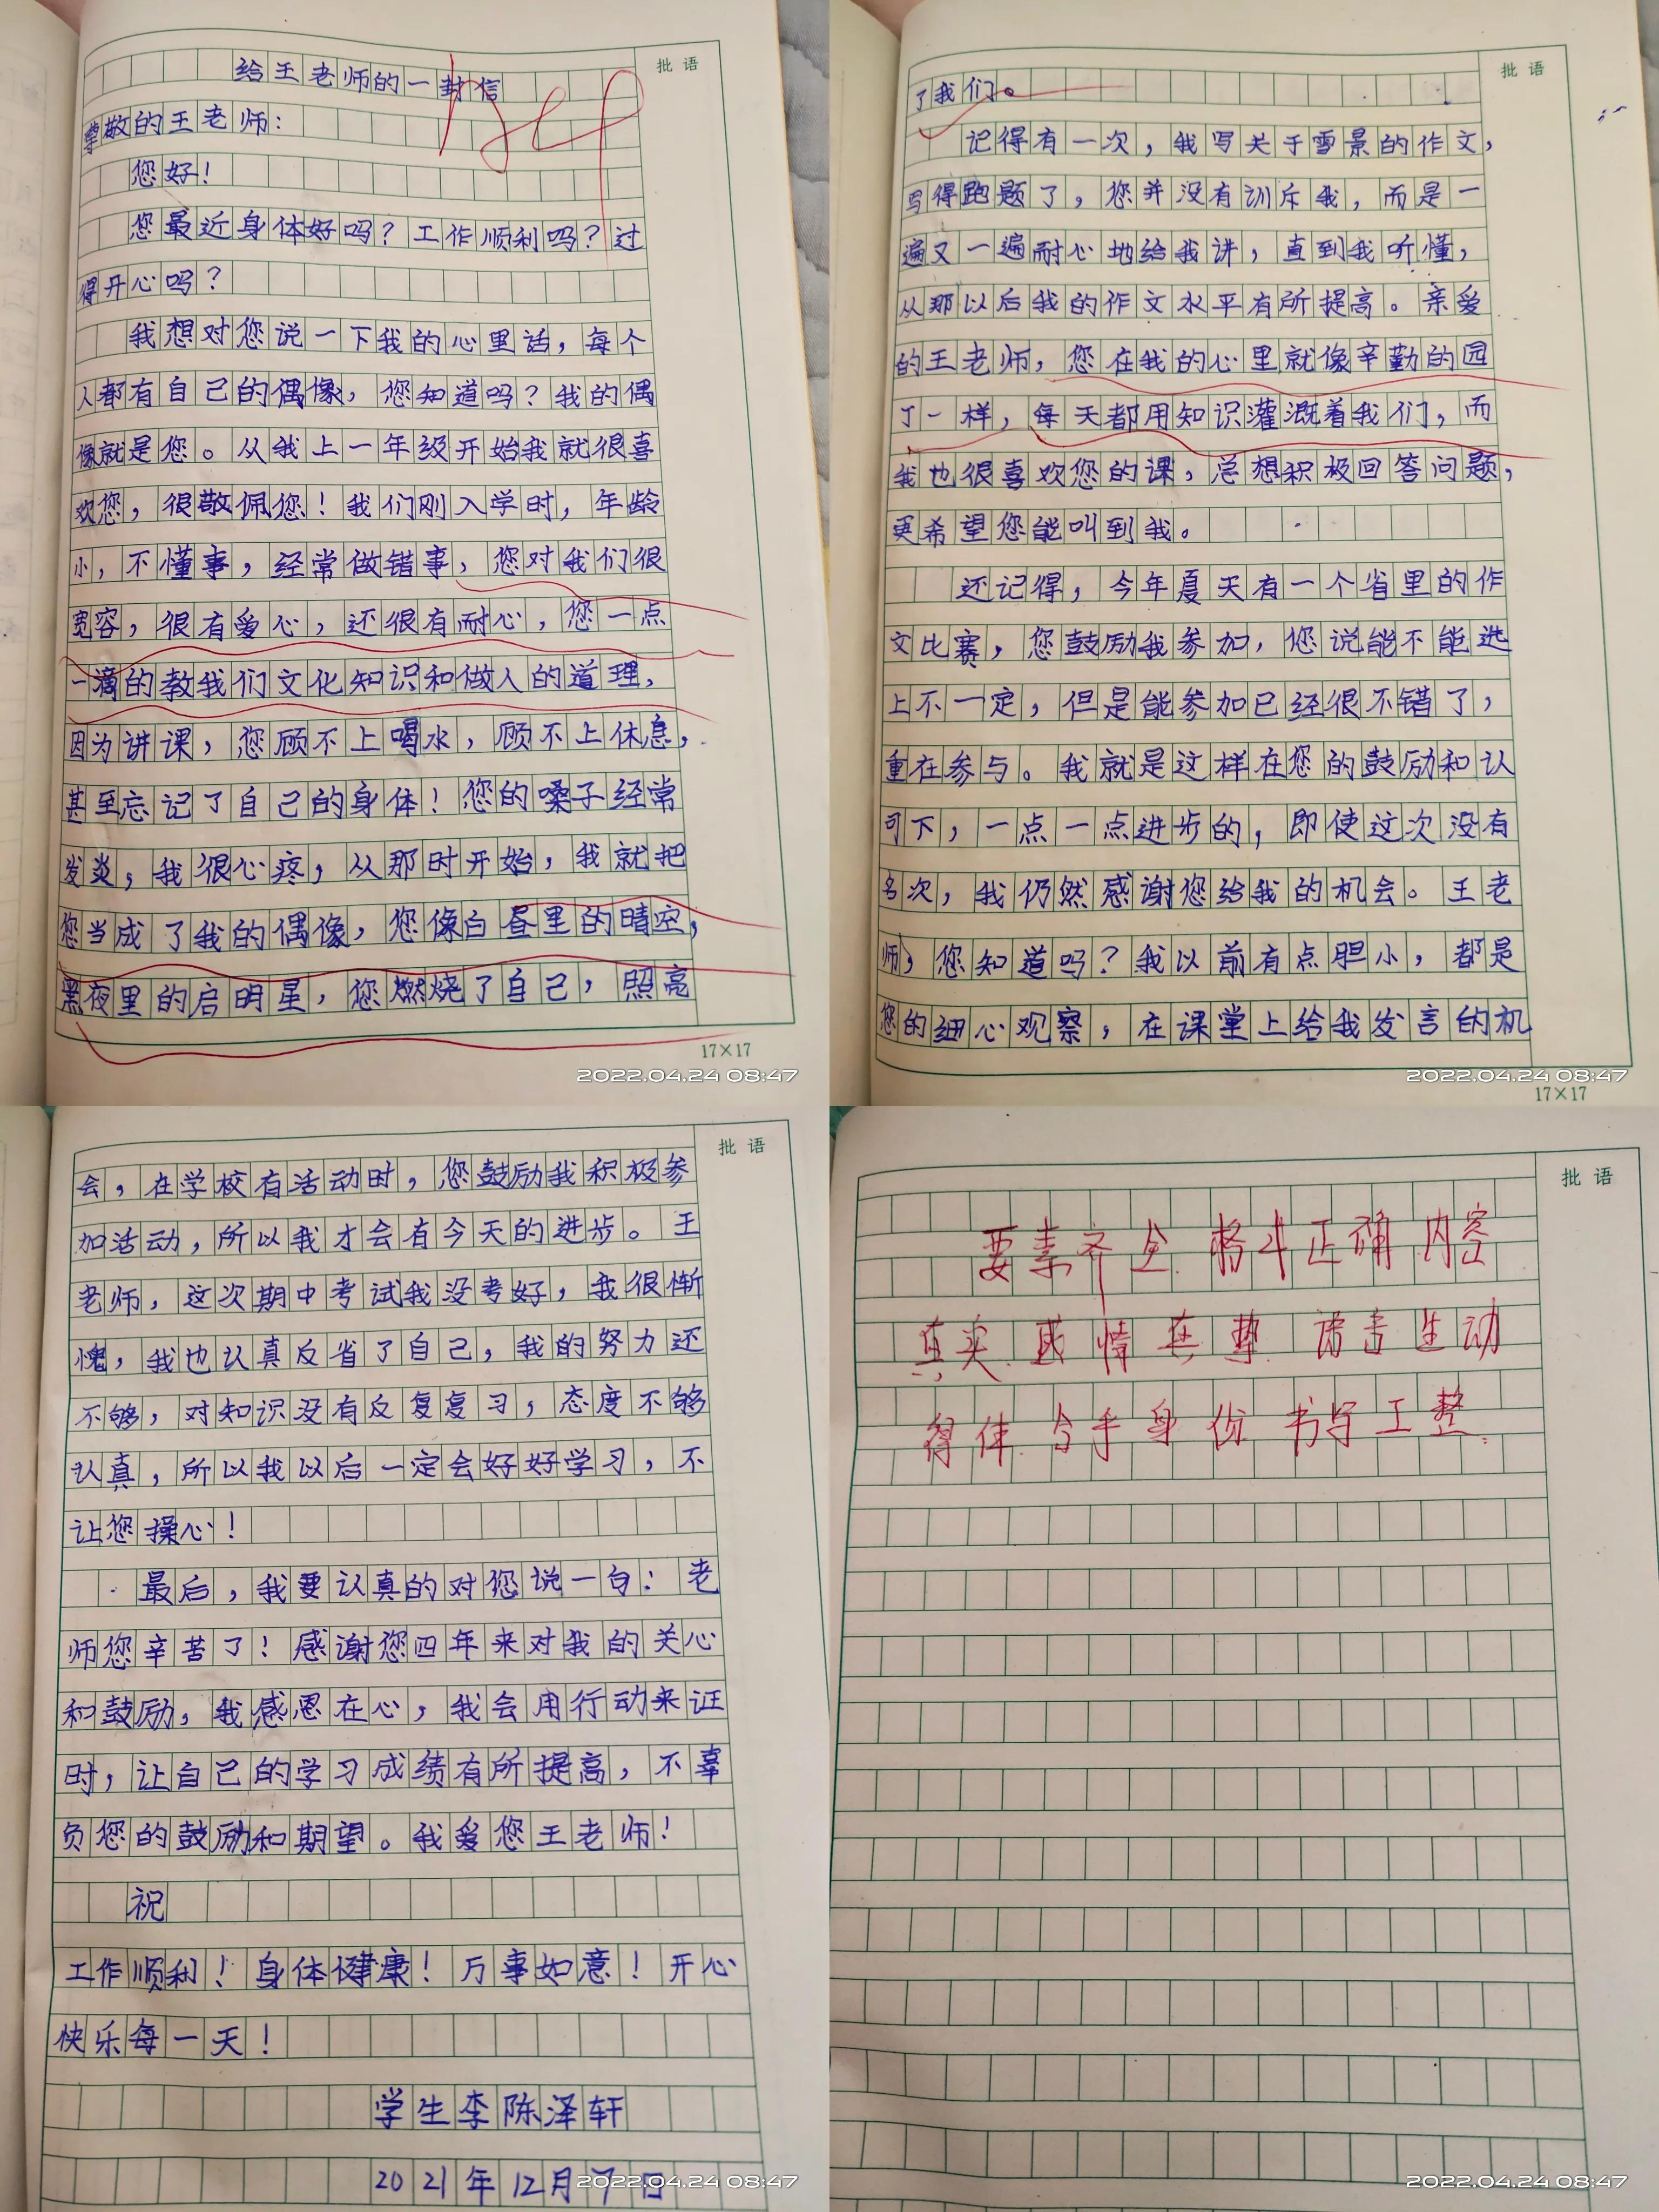 给王老师的一封信
批语
尊敬的王老师：
您好！
您最近身体好吗？工作顺利吗？过
得开心吗？
我想对您说一下我的心里话，每个
人都有自己的偶像，您知道吗？我的偶
像就是您。从我上一年级开始我就很喜
欢您，很敬佩您！我们刚入学时，年龄
小，不懂事，经常做错事，您对我们很
宽容，很有爱心，还很有耐心，您一点
一滴的教我们文化知识和做人的道理，
因为讲课，您顾不上喝水，顾不上休息，
甚至忘记了自己的身体！您的嗓子经常
发炎，我很心疼，从那时开始，我就把
您当成了我的偶像，您像白昼里的晴空，
黑夜里的启明星，您燃烧了自己，照亮
17×17
2022.04.24 08:47
批语
了我们。
记得有一次，我写关于雪景的作文，
写得跑题了，您并没有训斥我，而是一
遍又一遍耐心地给我讲，直到我听懂，
从那以后我的作文水平有所提高。亲爱
的王老师，您在我的心里就像辛勤的园
丁一样，每天都用知识灌溉着我们，而
我也很喜欢您的课，总想积极回答问题，
更希望您能叫到我。
还记得，今年夏天有一个省里的作
文比赛，您鼓励我参加，您说能不能选
上不一定，但是能参加已经很不错了，
重在参与。我就是这样在您的鼓励和认
可下，一点一点进步的，即使这次没有
名次，我仍然感谢您给我的机会。王老
师，您知道吗？我以前有点胆小，都是
您的细心观察，在课堂上给我发言的机
2022.04.24 08:47
17×17
批语
会，在学校有活动时，您鼓励我积极参
加活动，所以我才会有今天的进步。王
老师，这次期中考试我没考好，我很惭
愧，我也认真反省了自己，我的努力还
不够，对知识没有反复复习，态度不够
认真，所以我以后一定会好好学习，不
让您操心！
最后，我要认真的对您说一句：老
师您辛苦了！感谢您四年来对我的关心
和鼓励，我感恩在心，我会用行动来证
时，让自己的学习成绩有所提高，不辜
负您的鼓励和期望。我爱您王老师！
祝
工作顺利！身体健康！万事如意！开心
快乐每一天！
学生李陈泽轩
2021年12月7日
2022.04.24 08:47
批语
要素齐全 格式正确 内容
真实 感情真挚 语言生动
得体 合乎身份 书写工整
2022.04.24 08:47